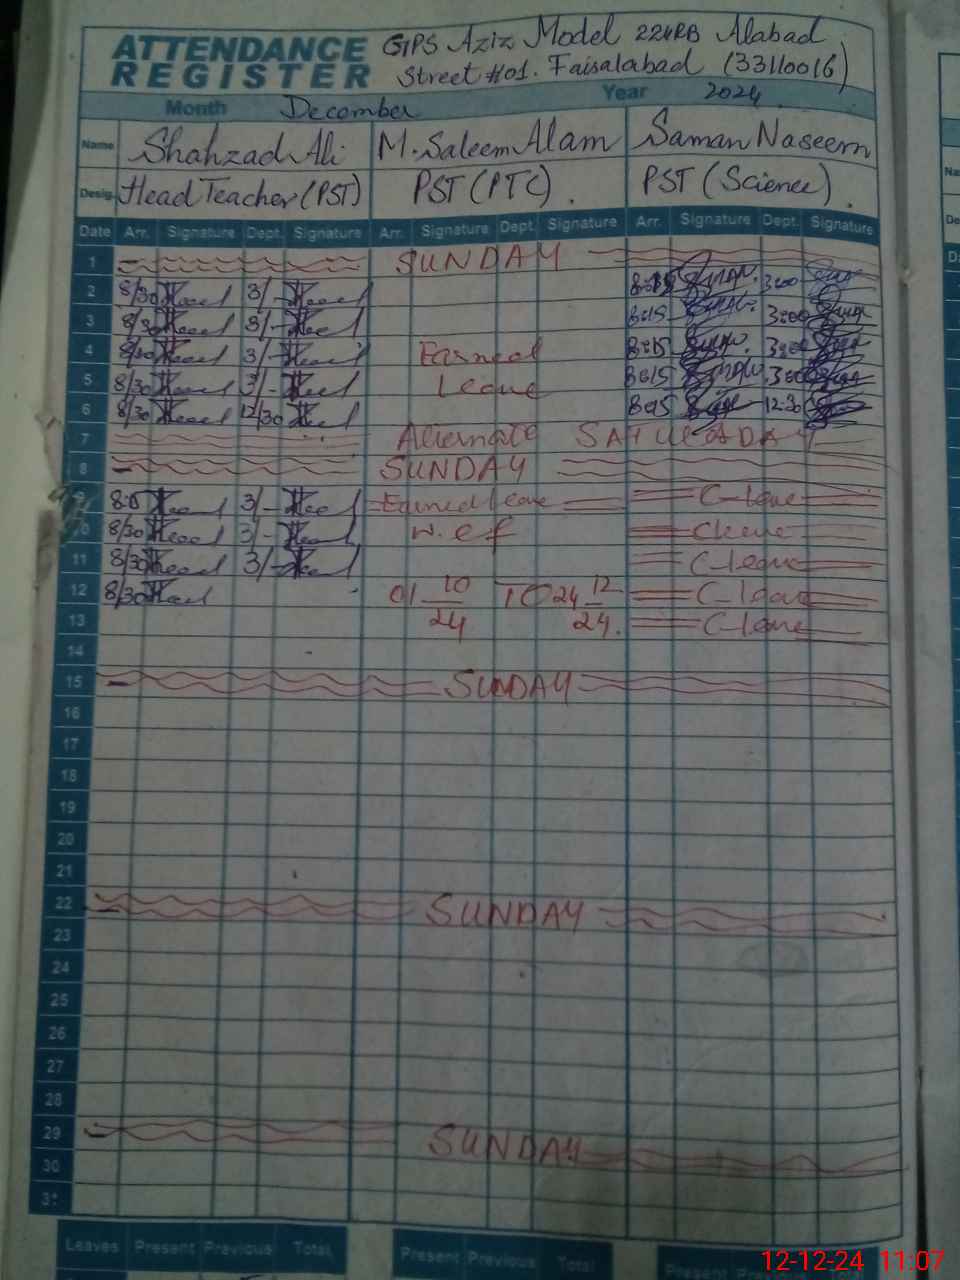 ATTENDANCE REGISTER
GPS Aziz Model 224RB Alabad
Street #01. Faisalabad (33110016)
Month December Year 2024
Name Shahzad Ali M. Saleem Alam Saman Naseem
Desig. Head Teacher (PST) PST (PTC). PST (Science).
Date Arr. Signature Dept. Signature Arr. Signature Dept. Signature Arr. Signature Dept. Signature
1 SUNDAY
2 8/30 3/- 8:15 3:00
3 8/30 3/- 8:15 3:00
4 8/30 3/- Earned 8:15 3:00
5 8/30 3/- Leave 8:15 3:00
6 8/30 12/30 8:15 12:30
7 Alternate SATURDAY
8 SUNDAY
9 3/- Earned leave C-leave
10 8/30 3/- w.e.f C-leave
11 8/30 3/- C-leave
12 8/30 01 10/24 TO 24 12/24. C-leave
13 C-leave
14
15 SUNDAY
16
17
18
19
20
21
22 SUNDAY
23
24
25
26
27
28
29 SUNDAY
30
Leaves Present Previous Total Present Previous Total Present Previous
12-12-24 11:07